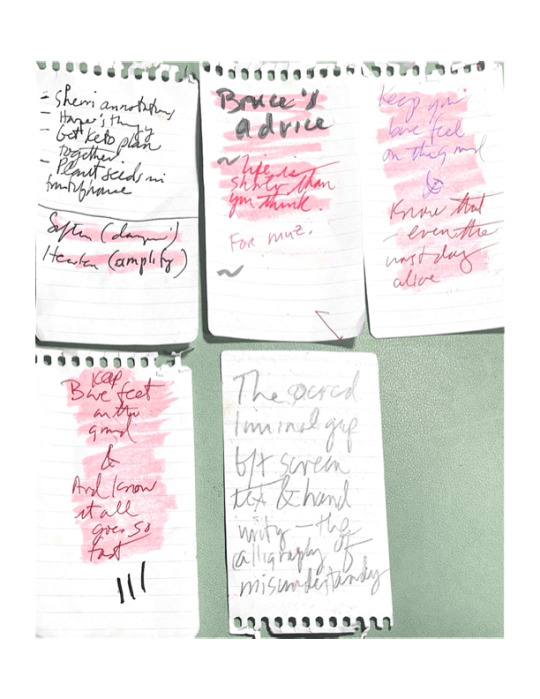 - Sherri annotations
- Harper's thing
- Get Keto plan
together
- Plant seeds in
front of house
Soften
Hearken (amplify)
Bruce's
advice
~ life is
shorter than
you think.
For muz.
~
Keep your
bare feet
on the ground
&
Know that
- even the
worst day
alive
Keep
Bare feet
on the
grnd
&
And know
it all
goes so
fast
III
The sacred
liminal gap
b/t screen
text & hand
writy - the
calligraphy of
misunderstandng